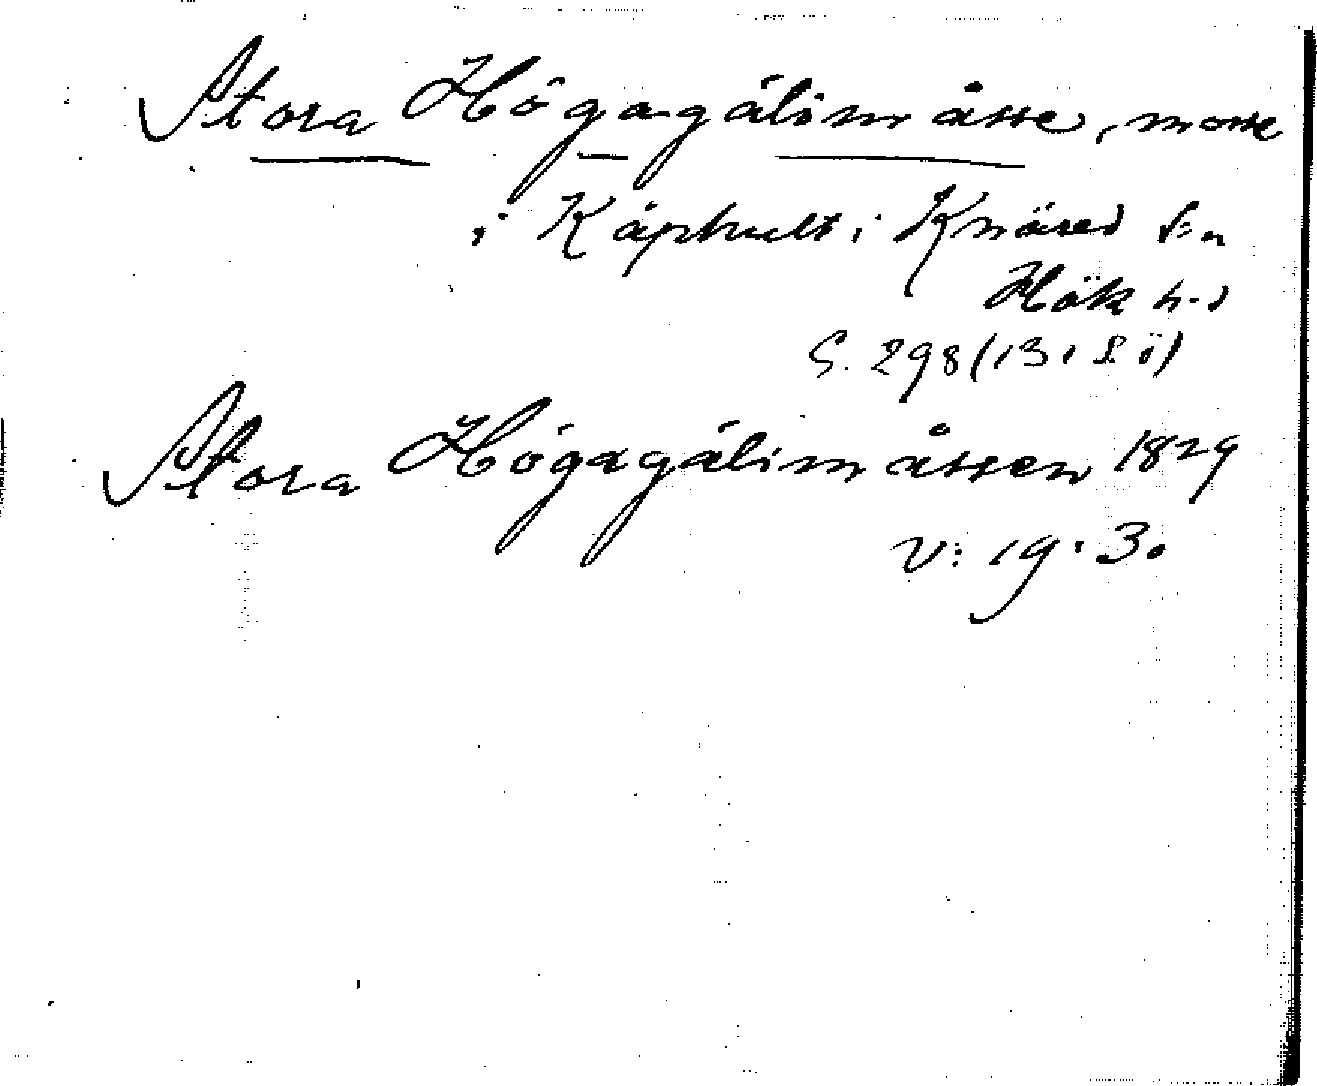 Stora Högagålsmåsse, mosse
i Kåphult i Knäred s:n
Hök h-d
S. 298 (13 i S. ö)
Stora Högagålsmåssen 1829
V: 19 · 3.